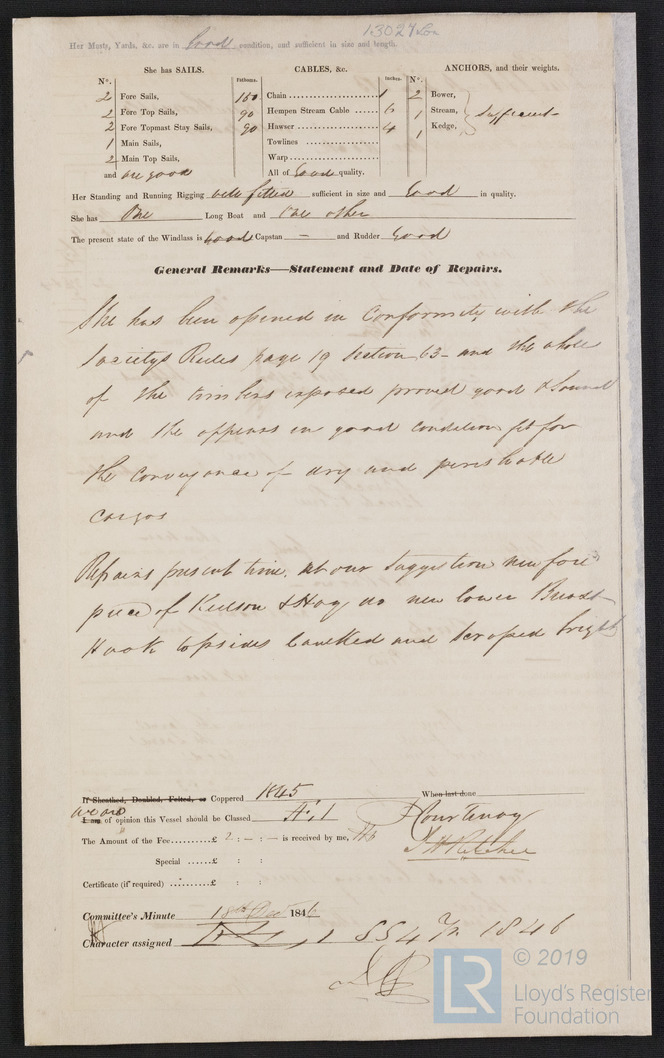 13024 Lon
Her Masts, Yards, &c. are in Good condition, and sufficient in size and length.
She has SAILS. CABLES, &c. ANCHORS, and their weights.
N°. Fathoms. Inches. N°.
2 Fore Sails, 150 Chain 1 2 Bower,
2 Fore Top Sails, 90 Hempen Stream Cable 6 1 Stream, Sufficient
2 Fore Topmast Stay Sails, 90 Hawser 4 1 Kedge,
1 Main Sails, Towlines
2 Main Top Sails, Warp
and are good All of Good quality.
Her Standing and Running Rigging well fitted sufficient in size and Good in quality.
She has One Long Boat and One other
The present state of the Windlass is Good Capstan — and Rudder Good
General Remarks—Statement and Date of Repairs.
She has been opened in Conformity with the
Societys Rules page 19 Section 63 - and the whole
of the timbers exposed proved good & Sound
and the appears in good condition fit for
the conveyance of dry and perishable
cargos
Repairs present time. at our Suggestion new fore
piece of Keelson & new lower Breast
Hook topsides Caulked and Scraped bright
If Sheathed, Doubled, Felted, or Coppered 1845 When last done
we are
I am of opinion this Vessel should be Classed Æ 1 Courtenay
The Amount of the Fee......£ 2 : — : — is received by me,
Special ......£ : :
Certificate (if required) ......£ : :
Committee's Minute 18th Decr 1846
Character assigned 1 1846
© 2019
LR Lloyd's Register
Foundation